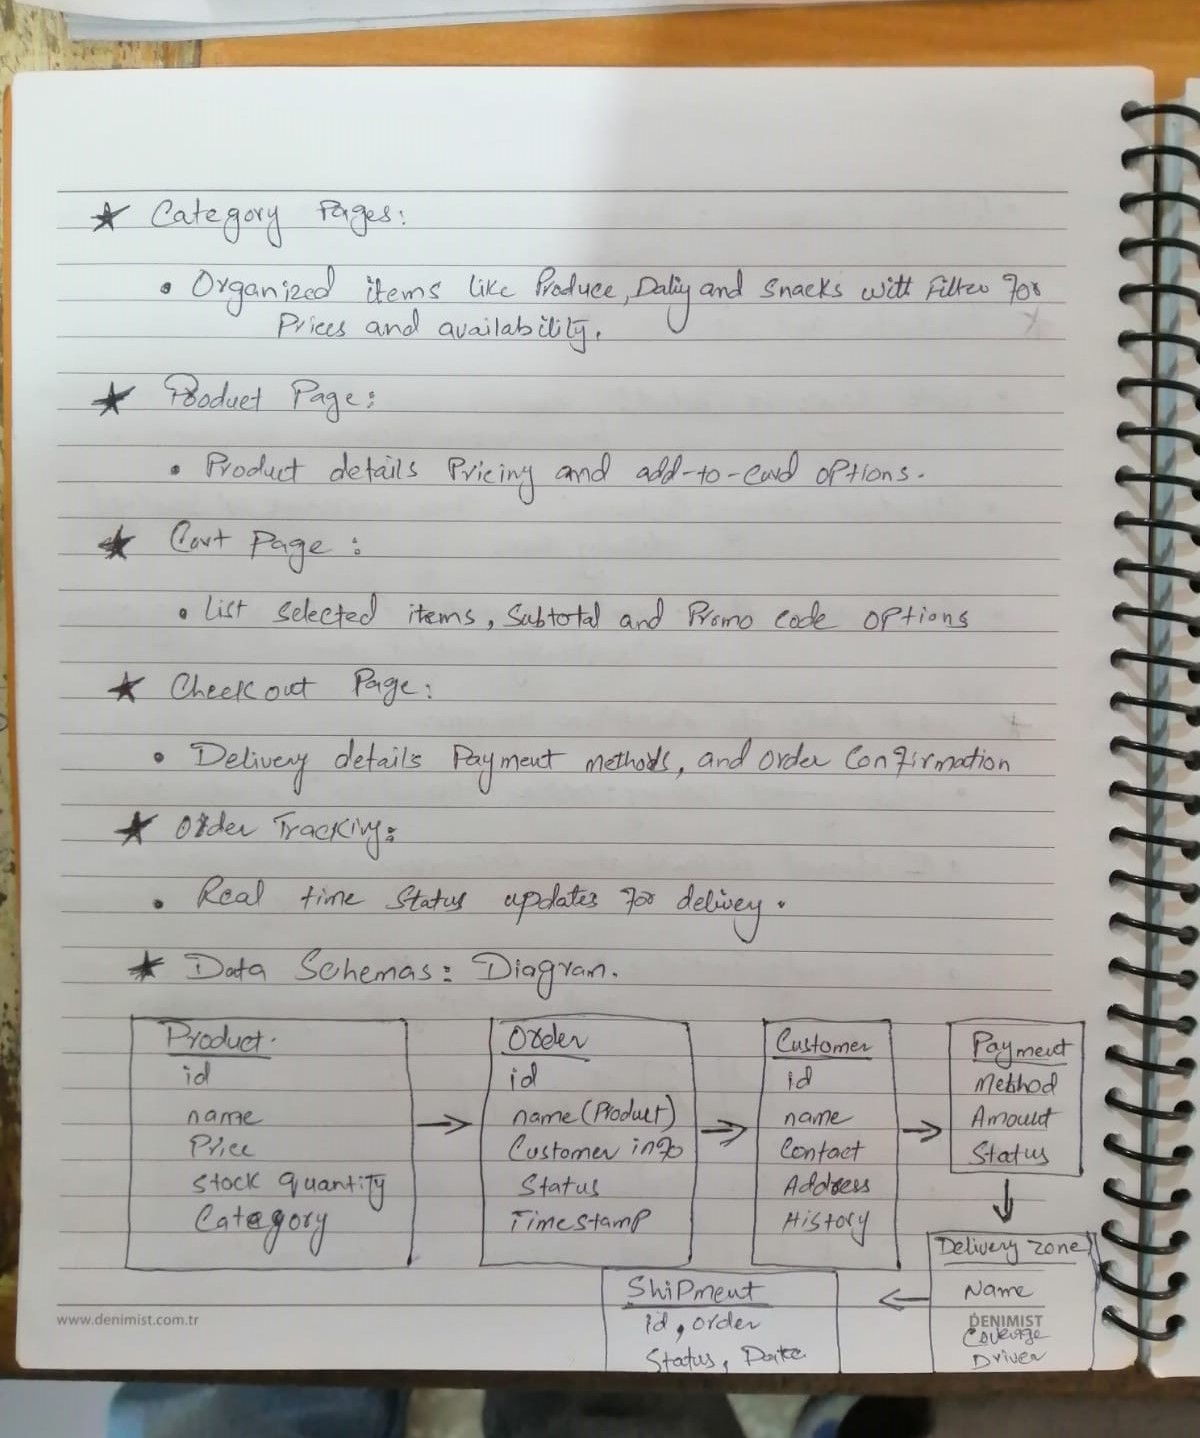 ★ Category Pages:
• Organized items like Produce, Daliy and Snacks with Filter for
Prices and availability.
★ Product Page:
• Product details Pricing and add-to-card options.
★ Cart Page :
• List selected items, Subtotal and Promo code options
★ Check out Page:
• Delivery details Payment methods, and order Confirmation
★ Order Tracking:
• Real time Status updates for delivey.
★ Data Schemas: Diagram.
Product.
id
name
Price
Stock quantity
Category
Order
id
name (Product)
Customer info
Status
Timestamp
Customer
id
name
Contact
Address
History
Payment
Method
Amount
Status
Delivery zone
Name
Coverage
Driver
Shipment
id, order
Status, Date
www.denimist.com.tr
DENIMIST